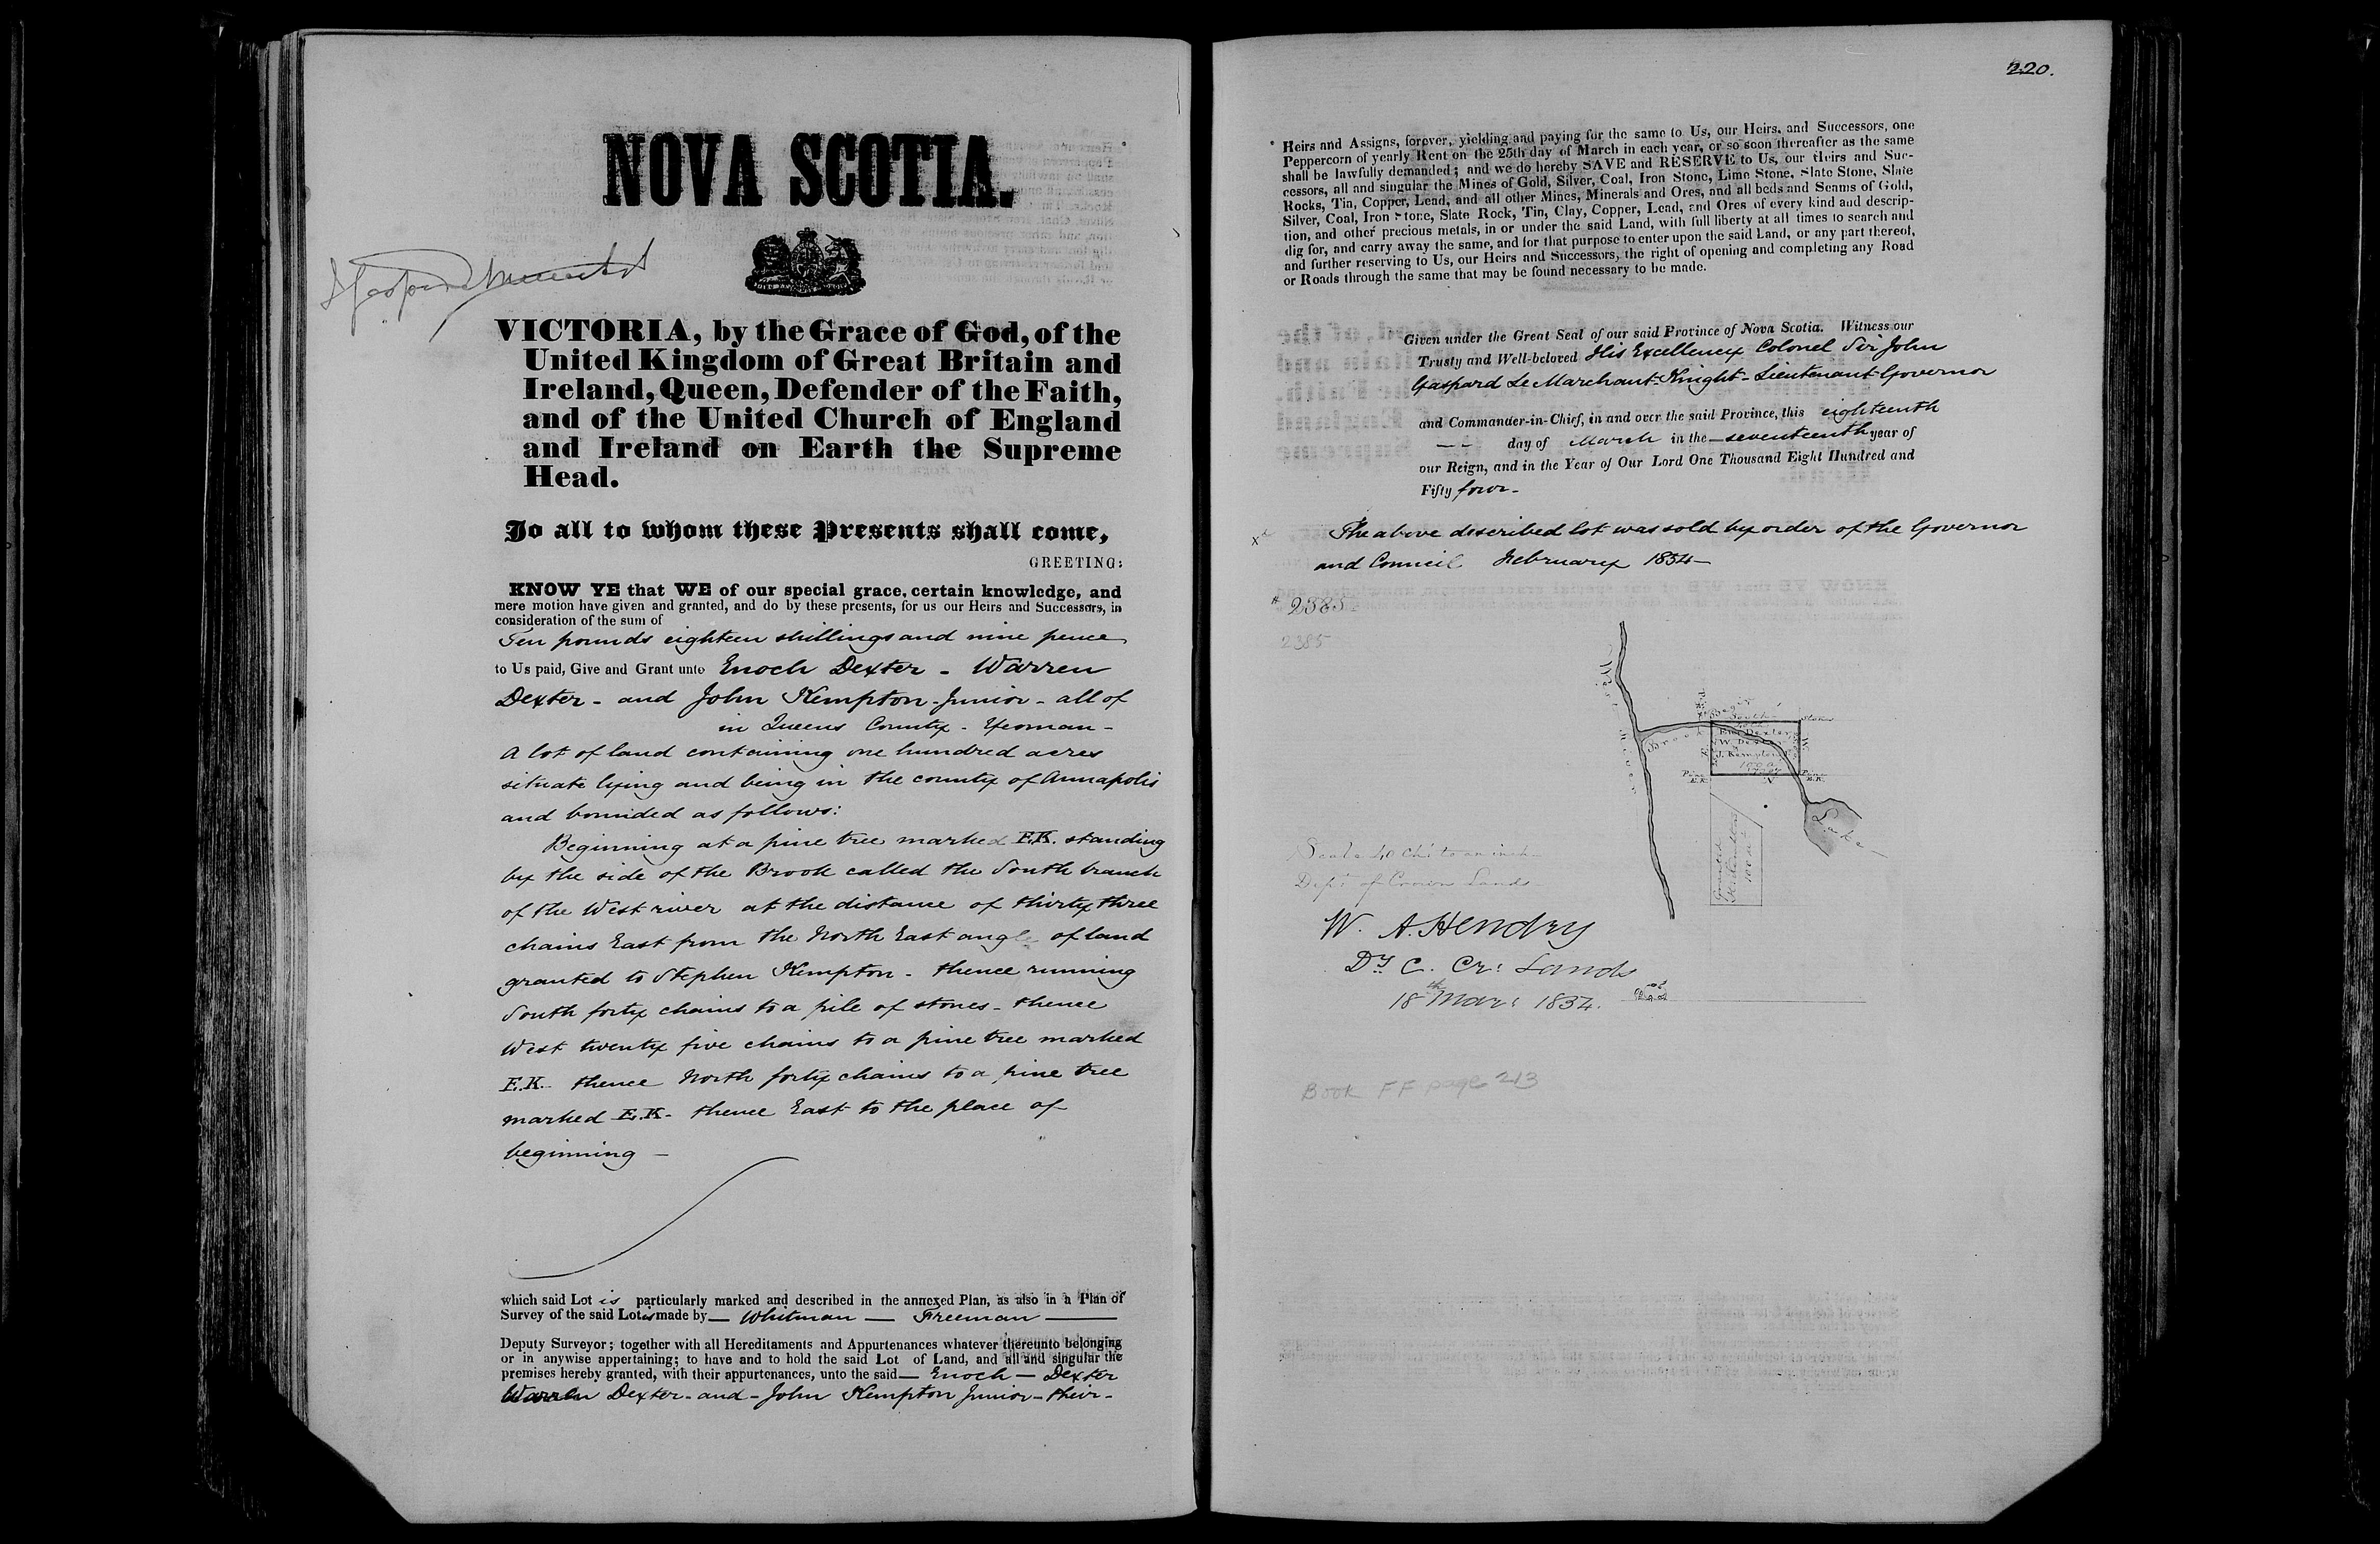 NOVA SCOTIA.
VICTORIA, by the Grace of God, of the
United Kingdom of Great Britain and
Ireland, Queen, Defender of the Faith,
and of the United Church of England
and Ireland on Earth the Supreme
Head.
To all to whom these Presents shall come,
GREETING:
KNOW YE that WE of our special grace, certain knowledge, and
mere motion have given and granted, and do by these presents, for us our Heirs and Successors, in
consideration of the sum of
Ten pounds eighteen shillings and nine pence
to Us paid, Give and Grant unto Enoch Dexter - Warren
Dexter - and John Kempton - Junior - all of
in Queens County - Yeoman -
A lot of land containing one hundred acres
situate lying and being in the county of Annapolis
and bounded as follows:
Beginning at a pine tree marked E.K. standing
by the side of the Brook called the South branch
of the West river at the distance of thirty three
chains East from the North East angle of land
granted to Stephen Kempton - thence running
South forty chains to a pile of stones - thence
West twenty five chains to a pine tree marked
E.K. thence North forty chains to a pine tree
marked E.K - thence East to the place of
beginning —
which said Lot is particularly marked and described in the annexed Plan, as also in a Plan of
Survey of the said Lot is made by — Whitman — Freeman —
Deputy Surveyor; together with all Hereditaments and Appurtenances whatever thereunto belonging
or in anywise appertaining; to have and to hold the said Lot of Land, and all and singular the
premises hereby granted, with their appurtenances, unto the said — Enoch — Dexter
Warren Dexter - and - John Kempton Junior - their -
220.
Heirs and Assigns, forever, yielding and paying for the same to Us, our Heirs, and Successors, one
Peppercorn of yearly Rent on the 25th day of March in each year, or so soon thereafter as the same
shall be lawfully demanded; and we do hereby SAVE and RESERVE to Us, our Heirs and Suc-
cessors, all and singular the Mines of Gold, Silver, Coal, Iron Stone, Lime Stone, Slate Stone, Slate
Rocks, Tin, Copper, Lead, and all other Mines, Minerals and Ores, and all beds and Seams of Gold,
Silver, Coal, Iron Stone, Slate Rock, Tin, Clay, Copper, Lead, and Ores of every kind and descrip-
tion, and other precious metals, in or under the said Land, with full liberty at all times to search and
dig for, and carry away the same, and for that purpose to enter upon the said Land, or any part thereof,
and further reserving to Us, our Heirs and Successors, the right of opening and completing any Road
or Roads through the same that may be found necessary to be made.
Given under the Great Seal of our said Province of Nova Scotia. Witness our
Trusty and Well-beloved His Excellency Colonel Sir John
Gaspard Le Marchant - Knight - Lieutenant Governor
and Commander-in-Chief, in and over the said Province, this eighteenth
day of March in the — seventeenth year of
our Reign, and in the Year of Our Lord One Thousand Eight Hundred and
Fifty four -
The above described lot was sold by order of the Governor
and Council February 1854 —
2385
2385
Brook
South
E. Dexter
W. Dexter
J. Kempton
100 a
Pine
E.K.
Pine
E.K.
Lake
Granted
100 a
Scale 40 chs to an inch
Dept of Crown Lands
W. A. Hendry
Dy C. Cr: Lands
18th Mar: 1854.
Book FF page 213